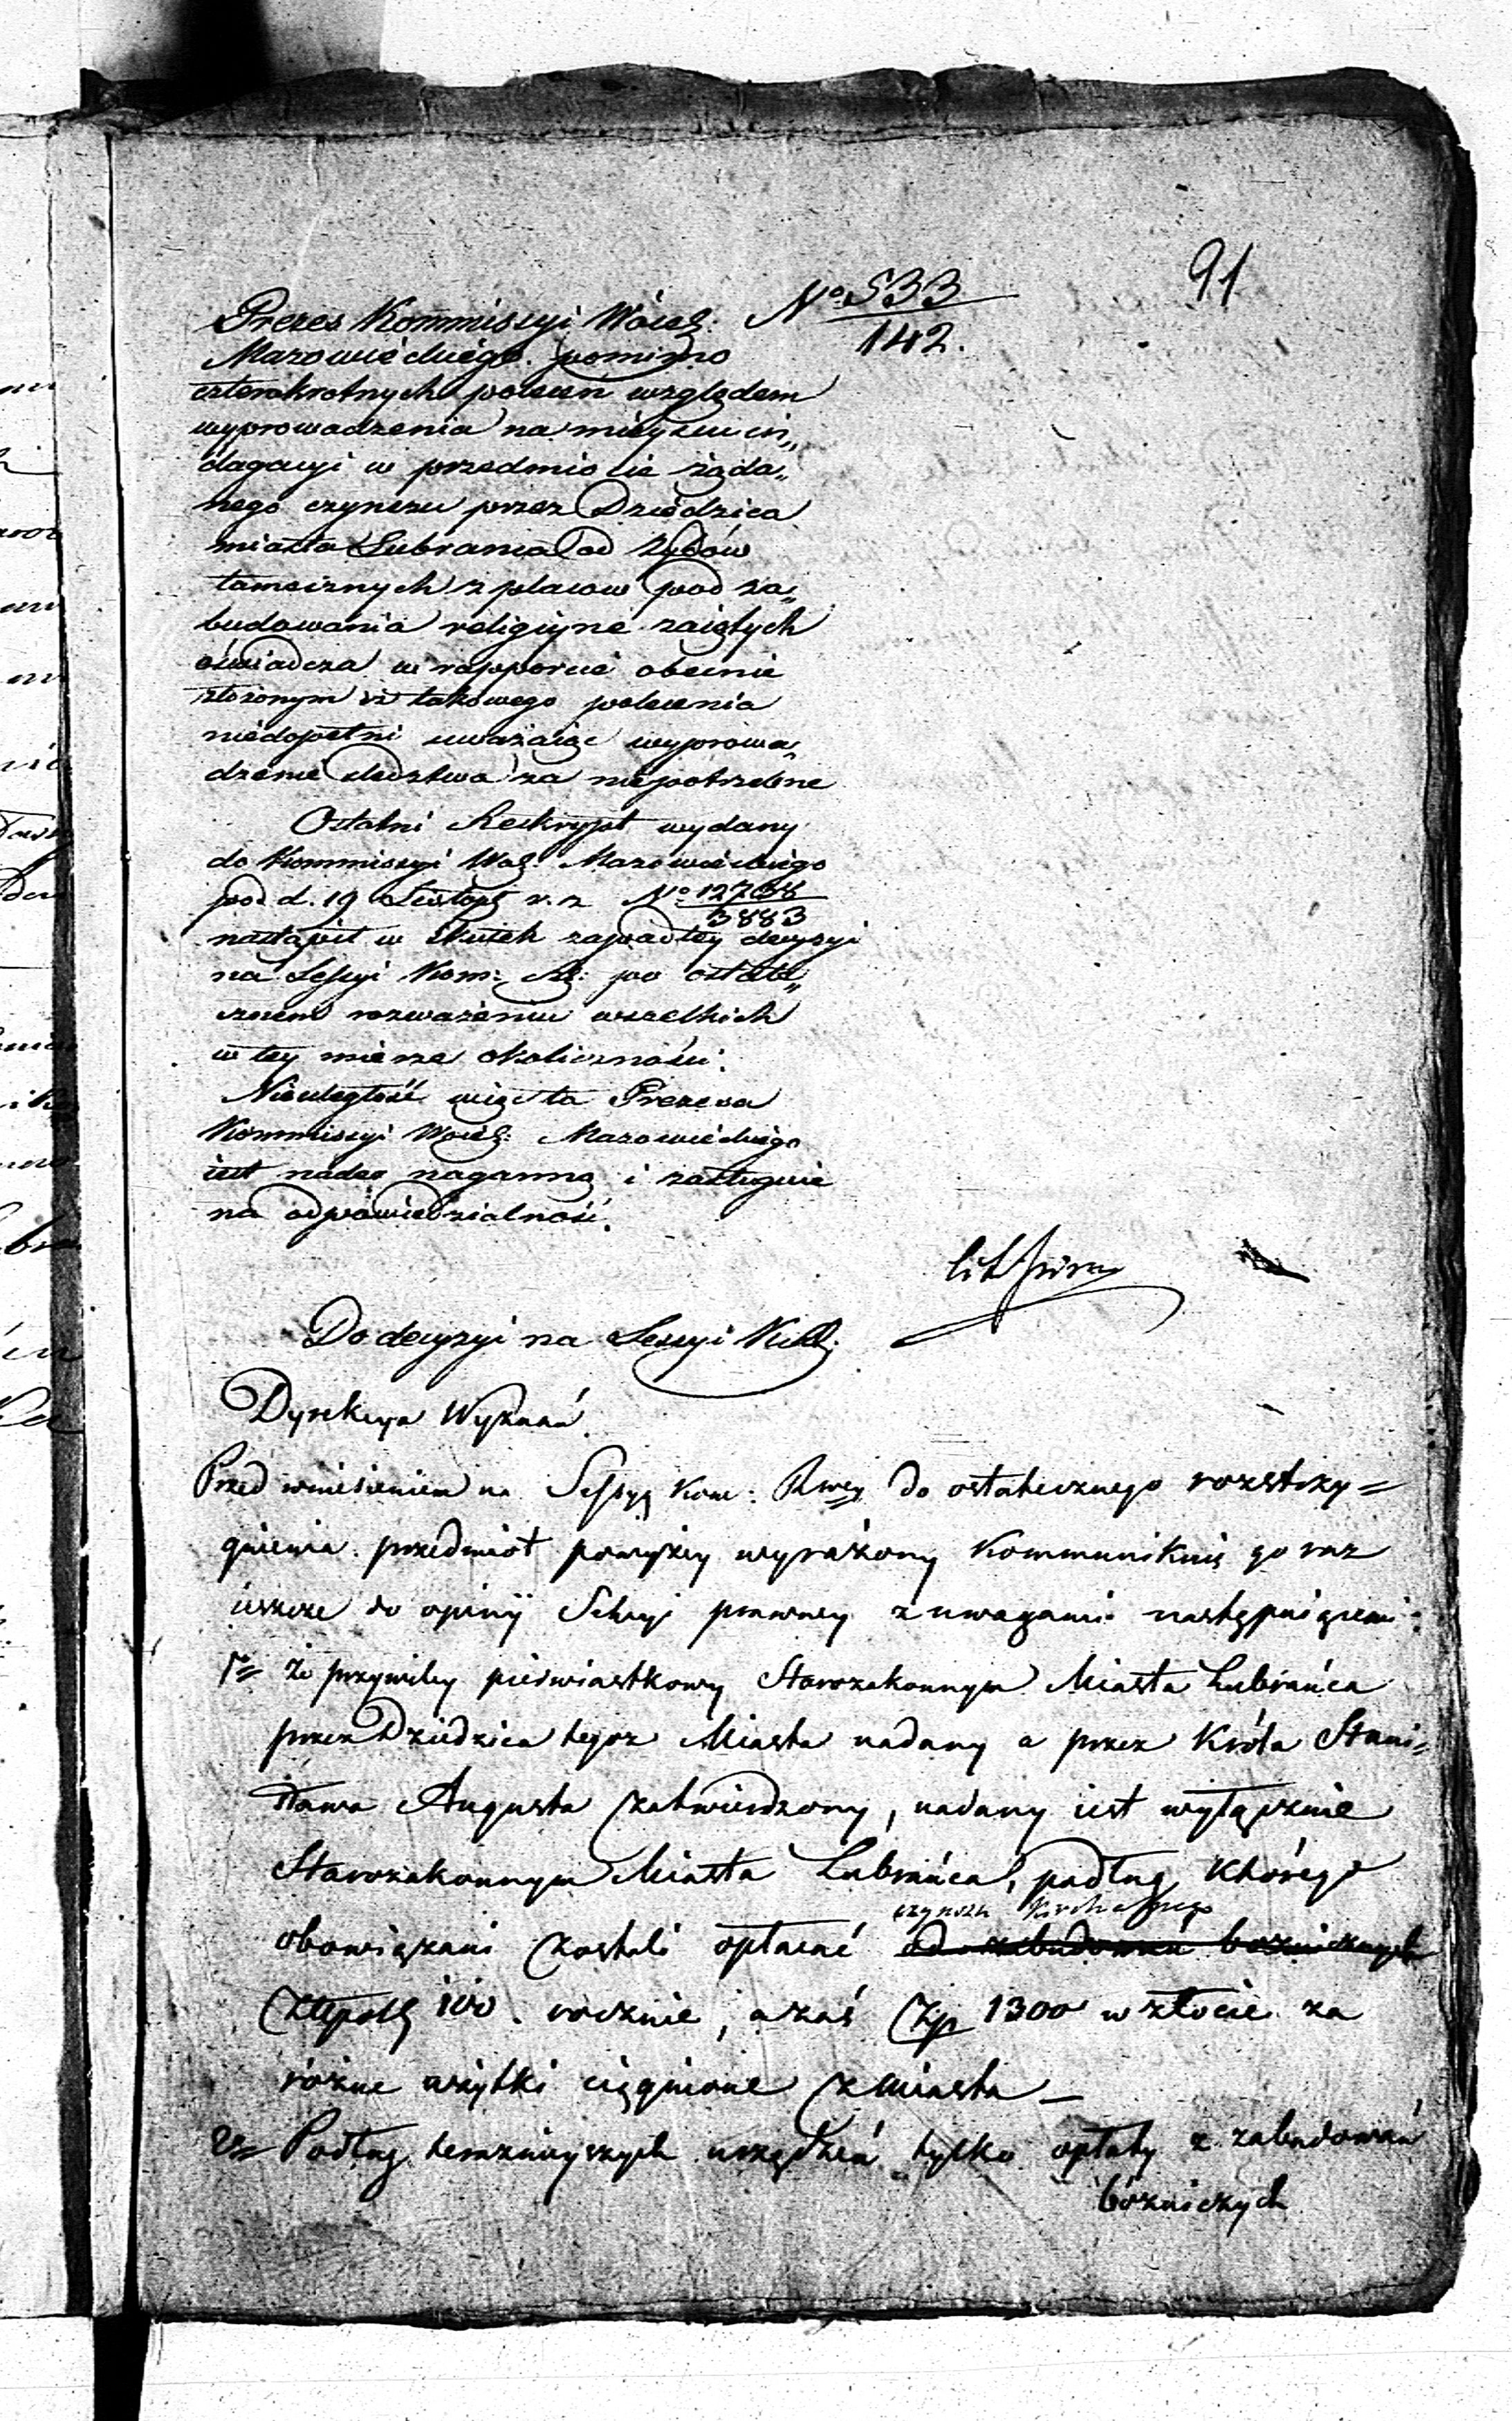 91
No 533
142.
Prezes Kommissyi Woiew:
Mazowieckiego pomimo
czterokrotnych poleceń względem
wyprowadzenia na mieyscu in„
dagacyi w przedmiocie żąda„
nego czynszu przez Dziedzica
miasta Lubrania od Żydów
tamecznych z placow pod za„
budowania religiyne zaiętych
oświadcza w rapporcie obecnie
złożonym iż takowego polecenia
niedopełni uważaiąc wyprowa„
dzenie śledztwa za niepotrzebne
Ostatni Reskrypt wydany
do Kommissyi Woj: Mazowieckiego
pod d. 19 Listop: r. z. No 12768
3883
nastąpił w skutek zapadłey decyzyi
na Sessyi Kom: Rz: po ostate„
cznem rozważeniu wszelkich
w tey mierze okoliczności.
Nieuległość więc ta Prezesa
Kommissyi Woiew: Mazowieckiego
iest nader naganną i zasługuie
na odpowiedzialność.
Do decyzyi na Sessyi
Dyrekcya Wyznań
Przed wniesieniem na Sessyą Kom: Rwey do ostatecznego rozstrzy=
gnienia przedmiot powyżey wyrażony kommunikuię go raz
ieszcze do opinii Sekcyi prawney z uwagami następuiącemi:
1o= że przywiley pierwiastkowy Starozakonnym Miasta Lubrańca
przez Dziedzica tegoz Miasta nadany a przez Króla Stani„
sława Augusta zatwierdzony, nadany iest wyłącznie
Starozakonnym Miasta Lubrańca, podług którego
czynszu
obowiązani zostali opłacać od zabudowań bożniczych
Złłpolj 100. rocznie, a zaś Złp 1300 w złocie za
różne użytki ciągnione z miasta _
2o= Podług teraznieyszych urządzeń tylko opłaty z zabudowań
bożniczych